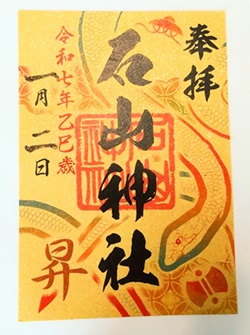 奉拝
石山神社
令和七年乙巳歳
一月二日
昇